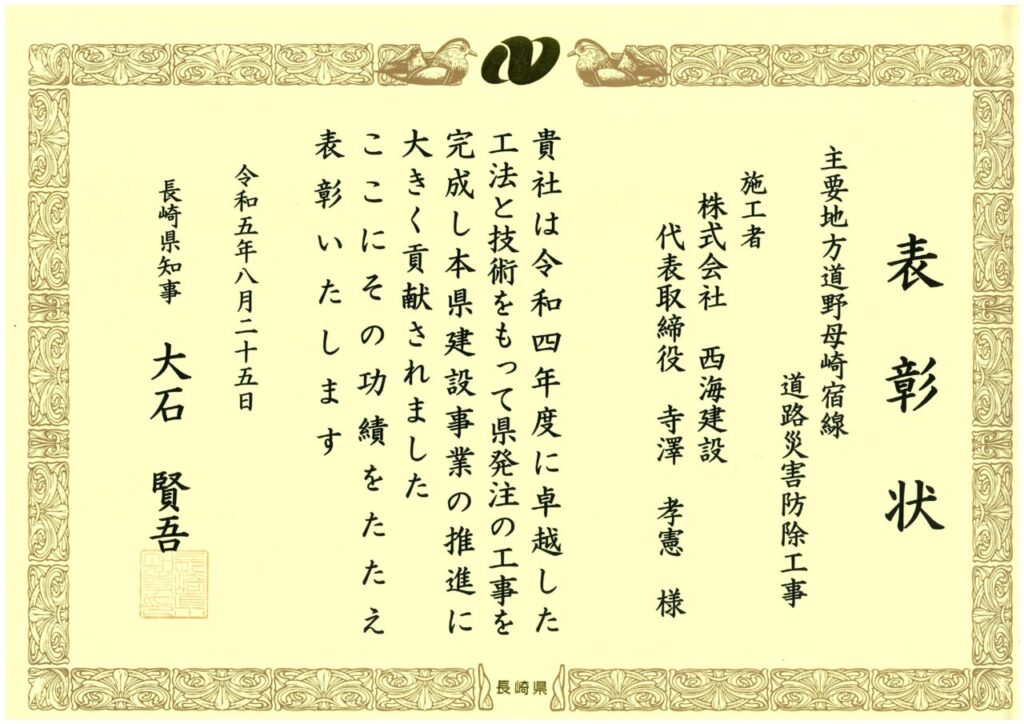 表彰状
主要地方道野母崎宿線
道路災害防除工事
施工者
株式会社 西海建設
代表取締役 寺澤 孝憲 様
貴社は令和四年度に卓越した
工法と技術をもって県発注の工事を
完成し本県建設事業の推進に
大きく貢献されました
ここにその功績をたたえ
表彰いたします
令和五年八月二十五日
長崎県知事 大石 賢吾
長崎県